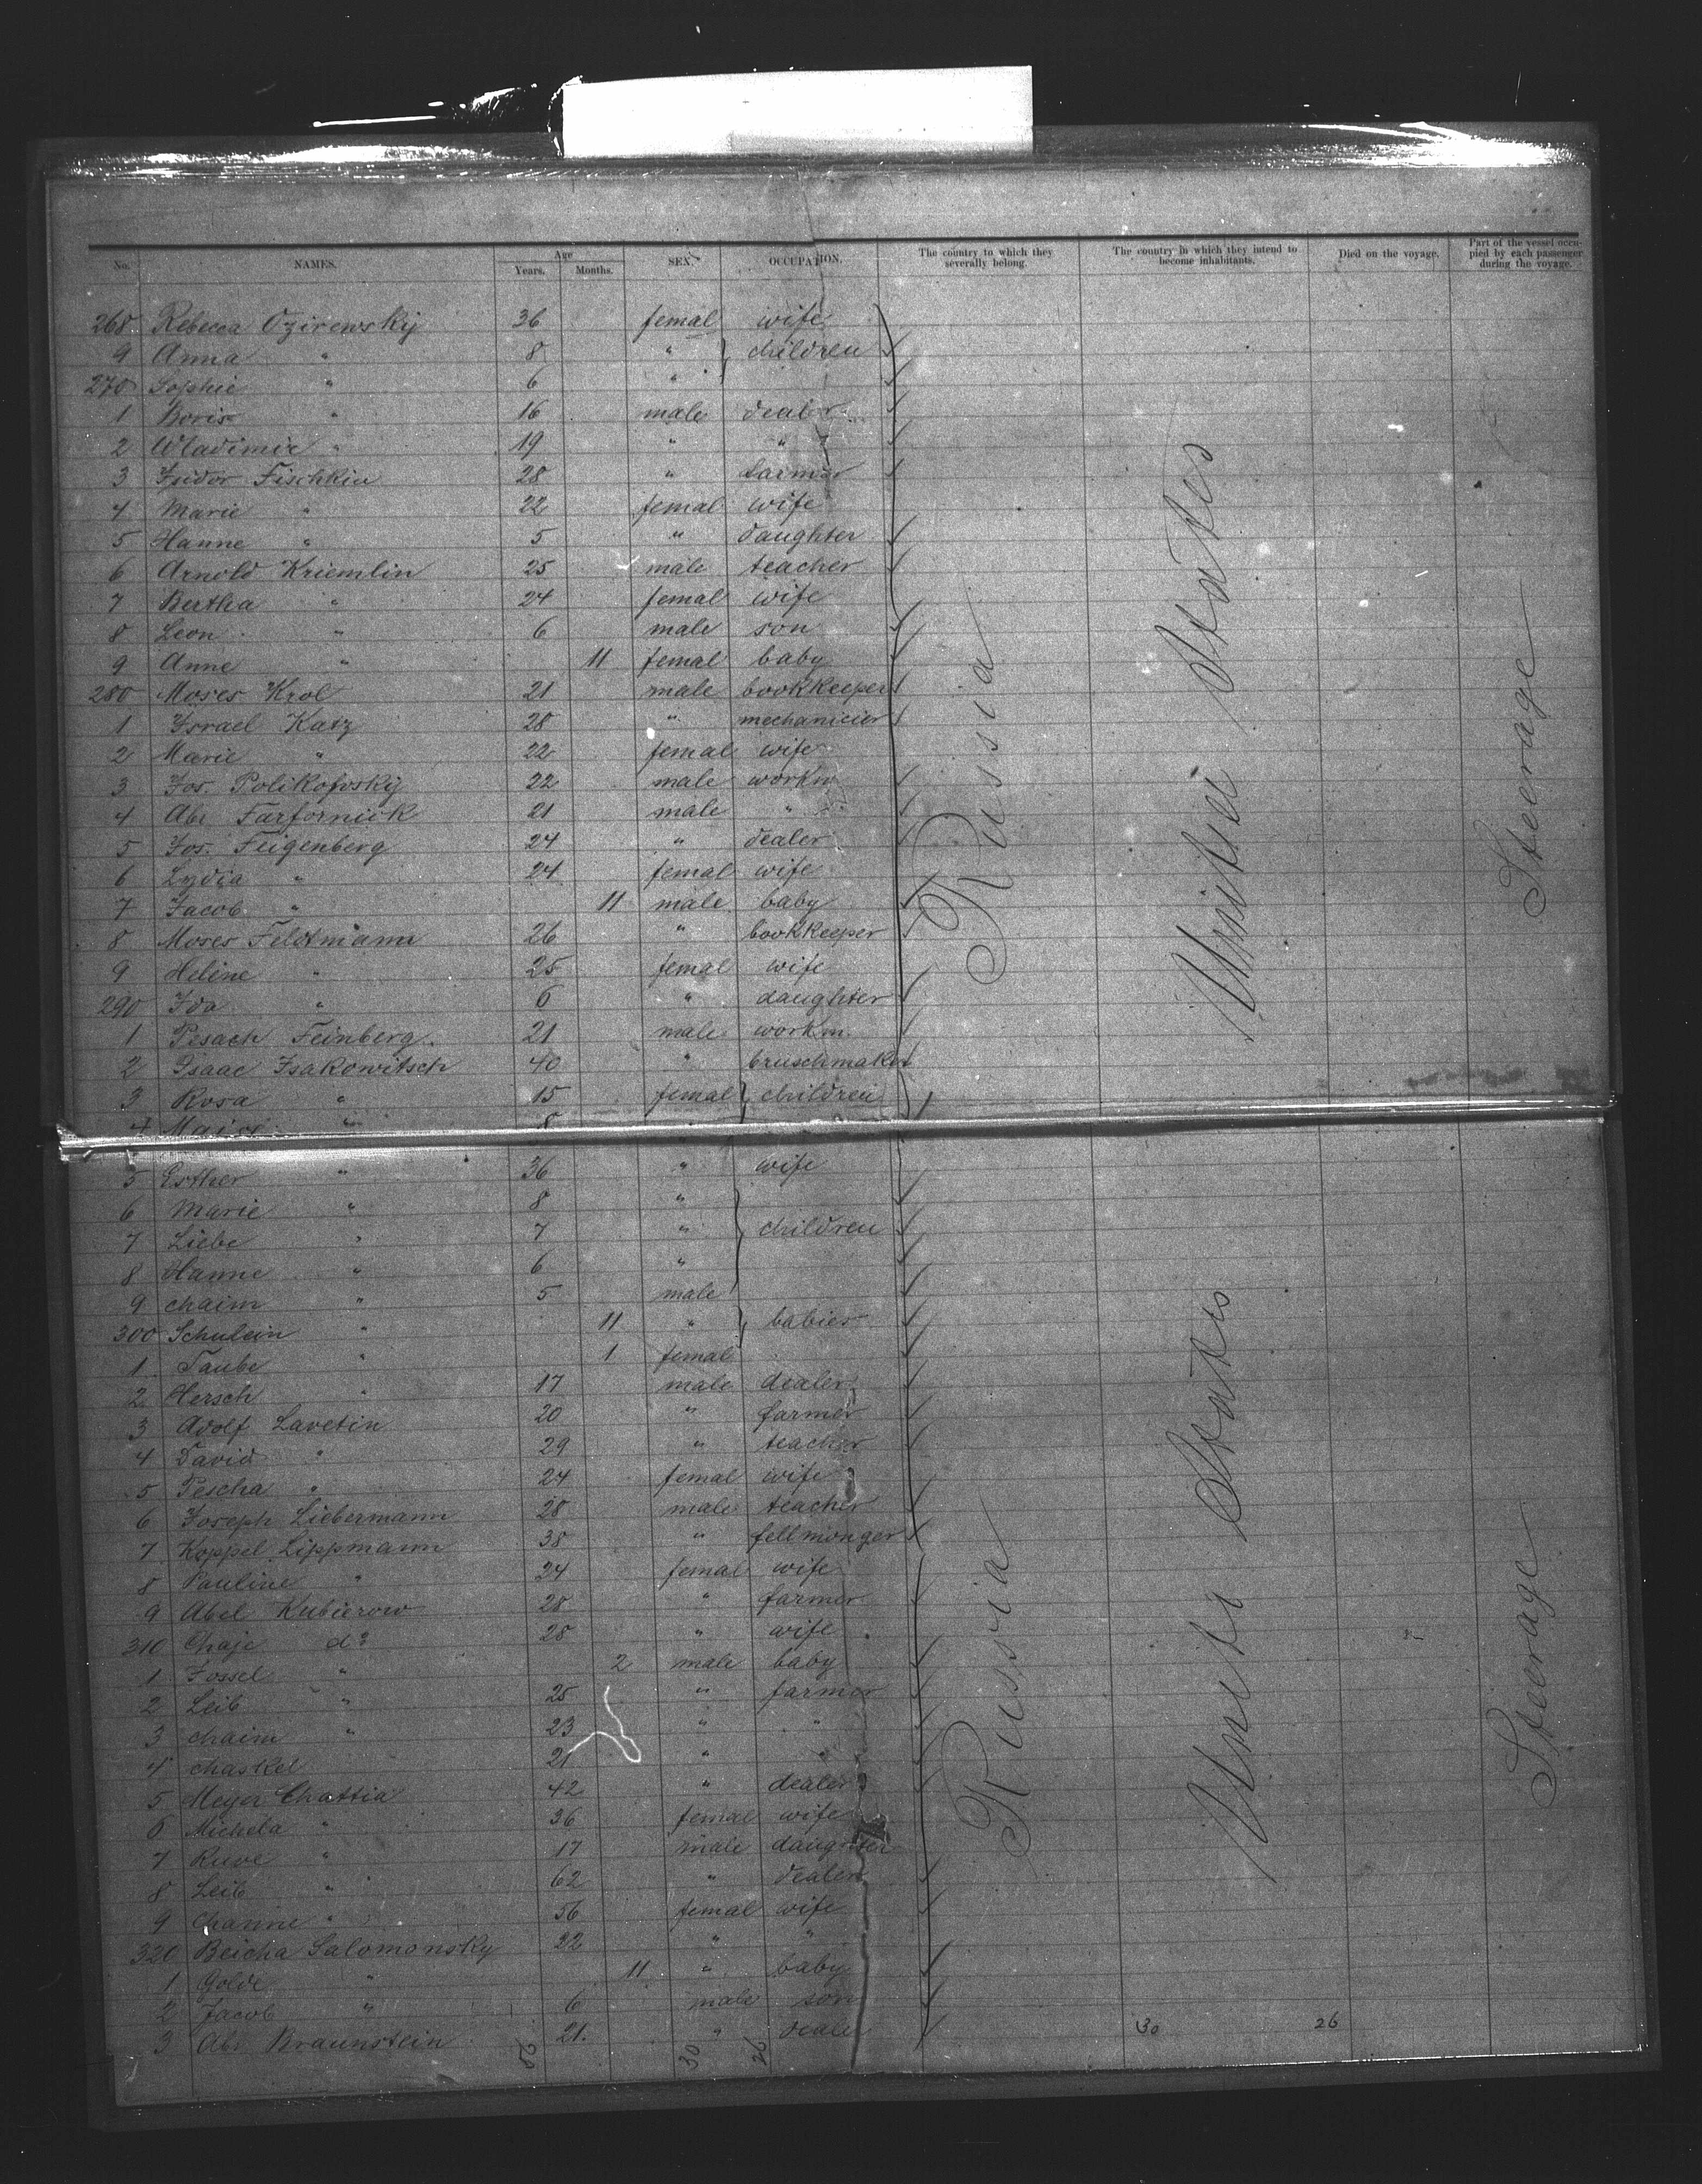 No. NAMES. Age Years. Months. SEX. OCCUPATION. The country to which they severally belong. The country in which they intend to become inhabitants. Died on the voyage. Part of the vessel occupied by each passenger during the voyage.
268 Rebecca Ozirewskij 36 femal wife
9 Anna " 8 " children
270 Sophie " 6 "
1 Boris " 16 male dealer
2 Wladimir " 19 " "
3 Isidor Fischkin 28 " farmer
4 Marie " 22 femal wife
5 Hanne " 5 " daughter
6 Arnold Kriemlin 25 male teacher
7 Bertha " 24 femal wife
8 Leon " 6 male son
9 Anne " 11 femal baby
280 Moses Krol 21 male bookkeeper
1 Israel Katz 28 " mechanicier
2 Marie " 22 femal wife
3 Jos. Polikofvskij 22 male workm
4 Abr Farfornick 21 male "
5 Jos. Feigenberg 24 " dealer
6 Lydia " 24 femal wife
7 Jacob " 11 male baby
8 Moses Feldtmann 26 " bookkeeper
9 Heline " 25 femal wife
290 Ida " 6 " daughter
1 Pesach Feinberg 21 male workm.
2 Isaac Isakowitsch 40 " bruschmaker
3 Rosa " 15 femal children
4 " 8
5 Esther " 36 " wife
6 Marie " 8 "
7 Liebe " 7 " children
8 Hanne " 6 "
9 chaim " 5 male
300 Schulein " 11 " babies
1 Taube " 1 femal
2 Hersch " 17 male dealer
3 Adolf Lavetin 20 " farmer
4 David " 29 " teacher
5 Pescha " 24 femal wife
6 Joseph Liebermann 28 male teacher
7 Koppel Lippmann 38 " fellmonger
8 Pauline " 24 femal wife
9 Abel Kubierow 28 " farmer
310 Chaje do 28 " wife
1 Jossel " 2 male baby
2 Leib " 25 " farmer
3 chaim " 23 " "
4 chaskel 21 " "
5 Meyer Chattia 42 " dealer
6 Michela " 36 femal wife
7 Ruve " 17 male daughter
8 Leib " 62 " dealer
9 Channe " 56 femal wife
320 Beicha Salomonsky 22 " "
1 Golde " 11 " baby
2 Jacob " 6 male son
3 Abr Braunstein 21. " dealer
56 30 26 30 26
Russia United States Steerage
Russia United States Steerage